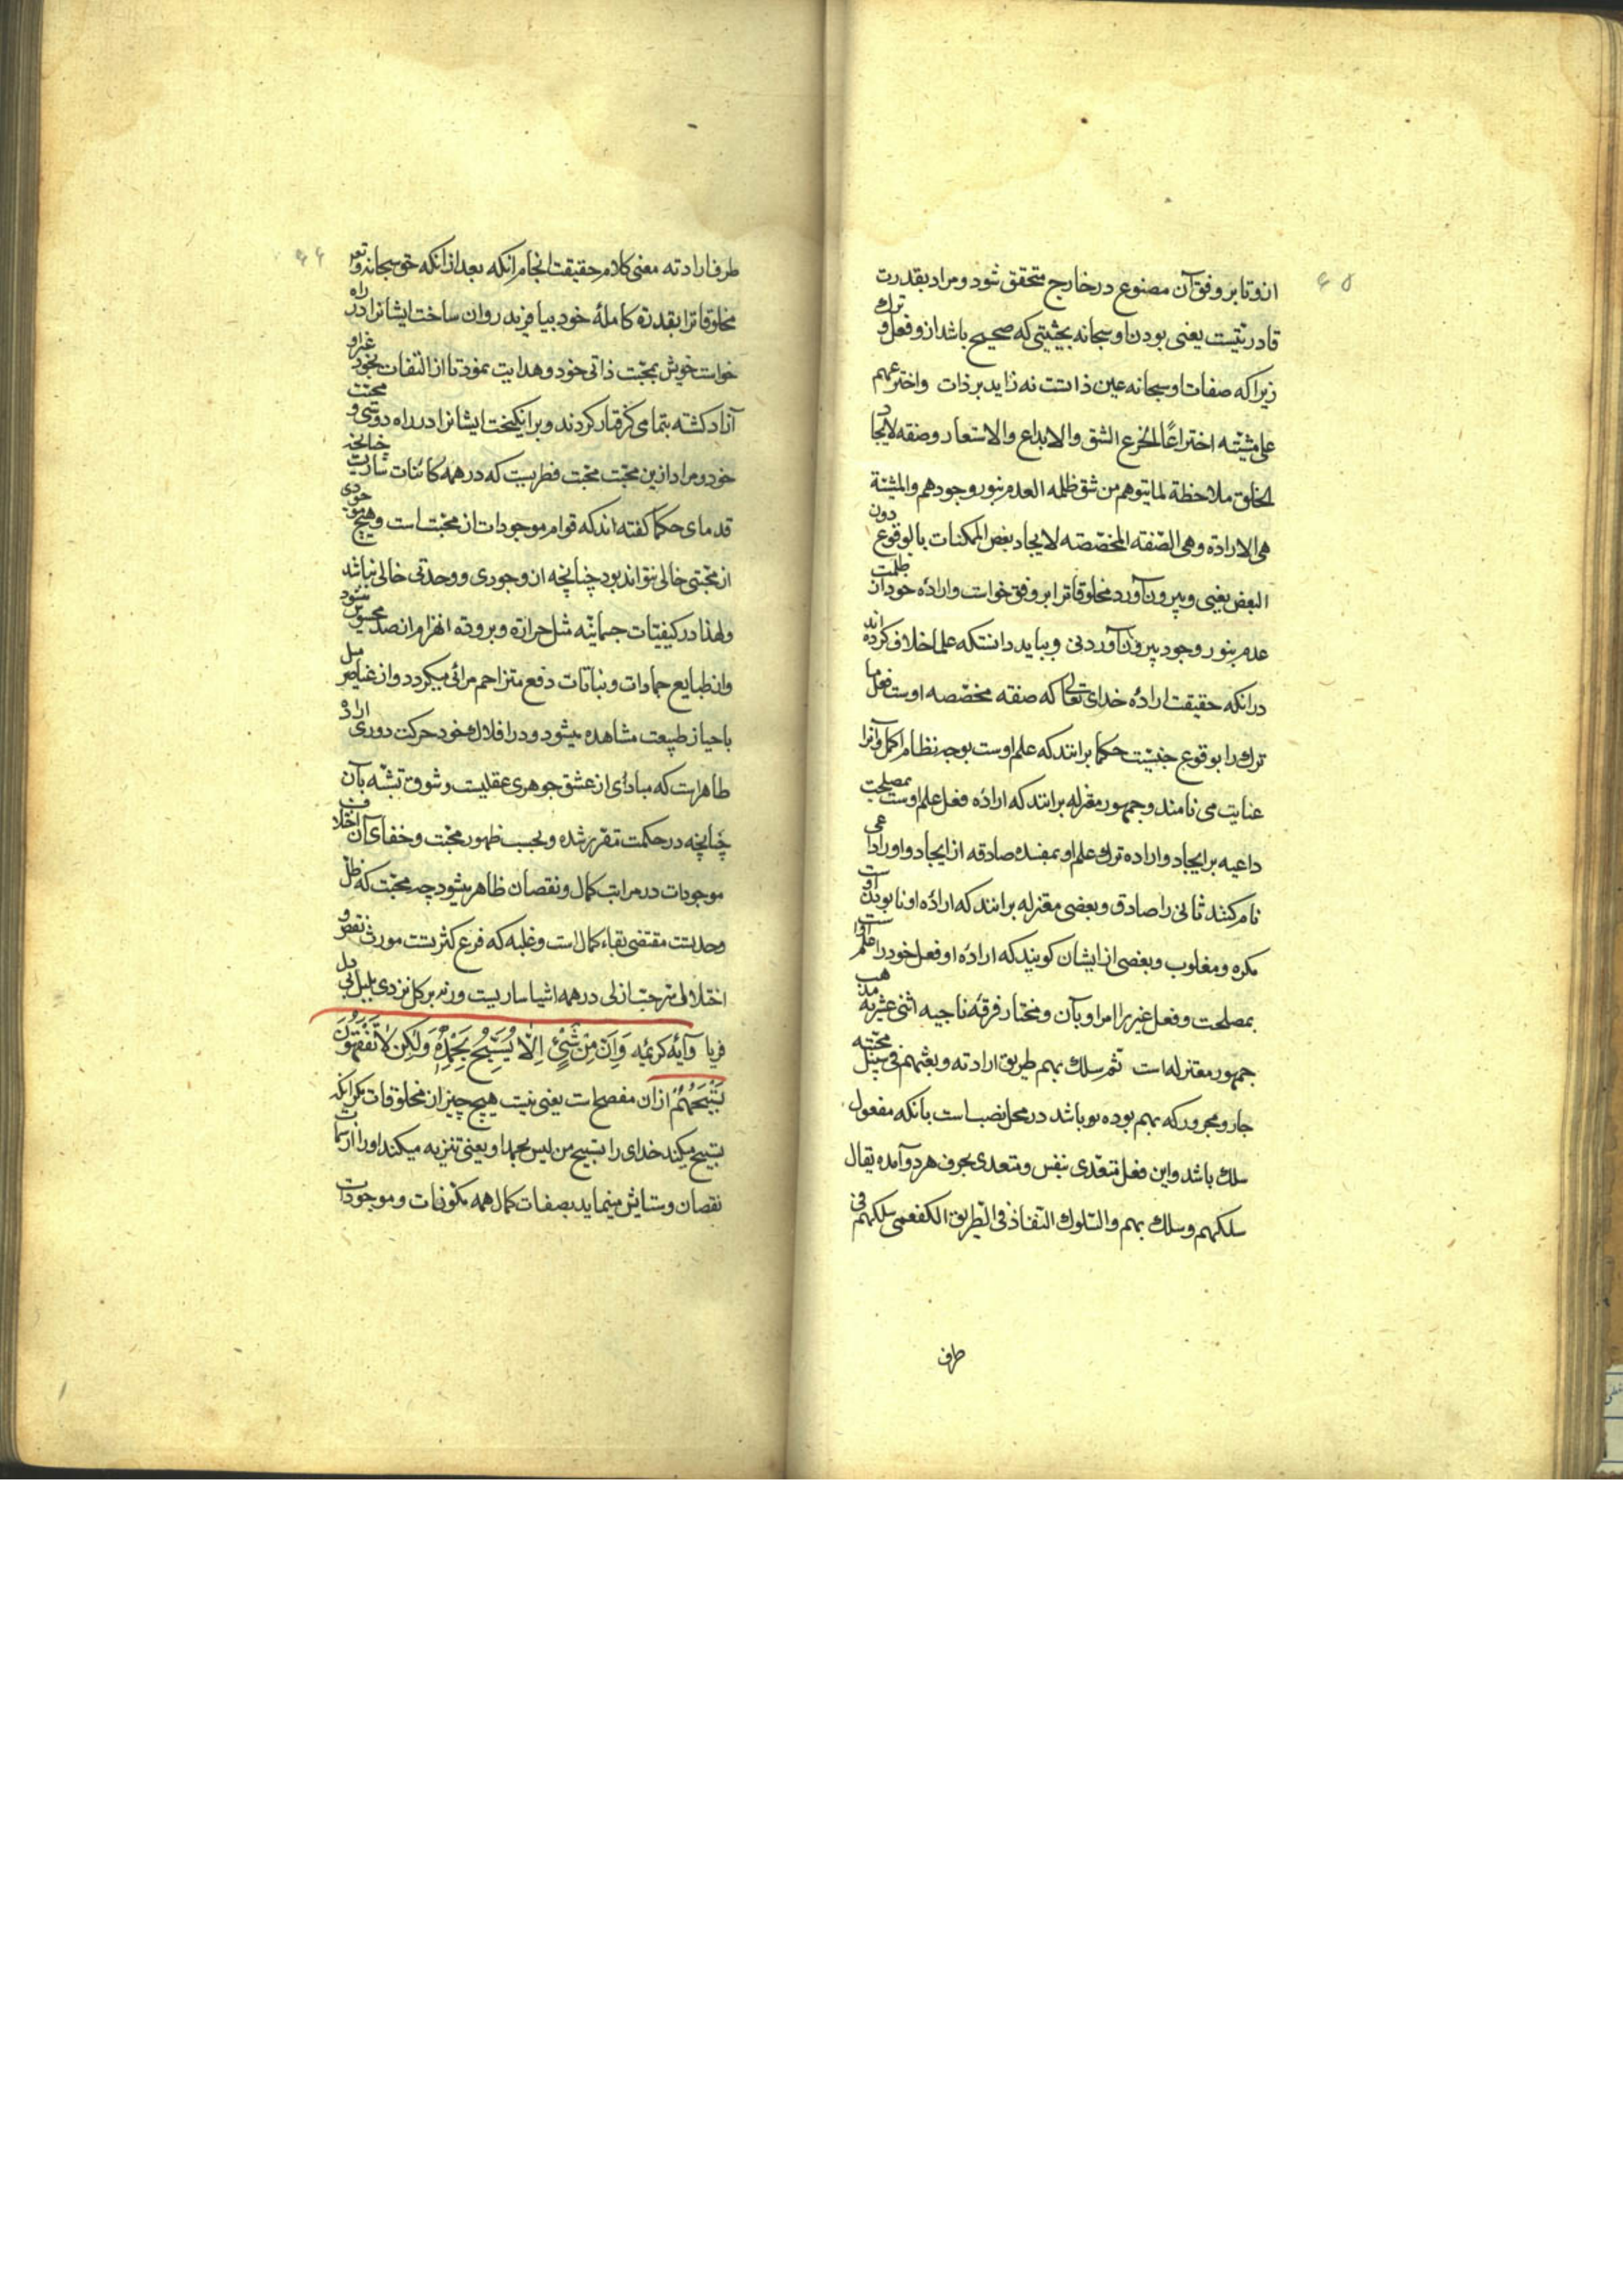 ۶۵
ازو تا بر وفق آن مصنوع در خارج متحقق شود و مراد بقدرت
قادریتست یعنی بودن او سبحانه بحیثیتی که صحیح باشد ازو فعل و ترک
زیرا که صفات او سبحانه عین ذاتست نه زاید بر ذات واخترعهم
علی مشیته اختراعًا الخرع الشق والابداع والاستعار وصفه لایجاد
الخلق ملاحظة لما یتوهم من شق ظلمه العدم بنور وجودهم والمشیئة
هی الارادة وهی الصفه المخصصه لایجاد بعض الممکنات بالوقوع دون
البعض یعنی و بیرون آورد مخلوقاترا بر وفق خواست و ارادۀ خود از ظلمت
عدم بنور وجود بیرون آوردنی و بباید دانست که علما خلاف کرده اند
در آنکه حقیقت ارادۀ خدای تعالی که صفة مخصصه اوست فعل ما
ترک را بوقوع چیست حکما برانند که علم اوست بوجه نظام اکمل و آنرا
عنایت می نامند و جمهور معتزله برانند که ارادۀ فعل علم اوست بمصلحت
داعیه بر ایجاد و اراده ترک علم او بمفسده صادقه از ایجاد و اول را داعی
نام کنند ثانی را صادق و بعضی معتزله برانند که ارادۀ او نابودن اوست
مکره و مغلوب و بعضی از ایشان گویند که ارادۀ او فعل خود را علم اوست
بمصلحت و فعل غیر را امر او بآن و مختار فرقۀ ناجیه اثنی عشریه مذهب
جمهور معتزله است ثم سلک بهم طریق ارادته وبعثهم فی سبیل محبته
جار و مجرور که بهم بوده بو باشد در محل نصب است بانکه مفعول
سلک باشد و این فعل متعدی بنفس و متعدی بحرف هر دو آمده یقال
سلکهم وسلک بهم والسلوک النفاذ فی الطریق الکفعمی سلکهم فی
طرف
۶۶
طرف ارادته معنی کلام حقیقت انجام آنکه بعد از آنکه حق سبحانه و تع
مخلوقاترا بقدرة کاملۀ خود بیافرید روان ساخت ایشانرا در راه
خواست خویش بمحبت ذاتی خود و هدایت نمود تا از التفات بخود غیر او
آزاد گشته بتمامی گرفتار کردند و برانگیخت ایشانرا در راه دوستی و محبت
خود و مراد ازین محبت محبت فطریست که در همه کائنات ساریست چنانچه
قدمای حکما گفته اند که قوام موجودات از محبت است و هیچ موجودی
از محبتی خالی نتواند بود چنانچه از وجودی و وحدتی خالی نباشد
ولهذا در کیفیات جسمانیه مثل حرارة و بروده انهزام از ضد محسوس شود
و از طبایع جمادات و نباتات دفع متزاحم مرائی میگردد و از عناصر میل
باحیاز طبیعت مشاهده میشود و در افلاک خود حرکت دوری ارادی
ظاهر است که مبادی از عشق جوهری عقلیست و شوق تشبه بآن
چنانچه در حکمت مقرر شده و بحسب ظهور محبت و خفای آن اختلاف
موجودات در مراتب کمال و نقصان ظاهر میشود چه محبت که ظل
وحدتست مقتضی بقاء کمال است و غلبه که فرع کثرتست مورث نقص و
اختلال سر حب ازلی در همه اشیا ساریست ورنه بر گل نزدی بلبل بی دل
فریاد و آیۀ کریمه وَاِنْ مِنْ شَیْئٍ اِلّا یُسَبِّحُ بِحَمْدِهِ وَلٰکِنْ لا تَفْقَهُونَ
تَسْبِیحَهُمْ از آن مفصح است یعنی نیست هیچ چیز از مخلوقات مگر آنکه
تسبیح میکند خدای را تسبیح من لیس بحمد او یعنی تنزیه میکند او را از سمات
نقصان و ستایش مینماید بصفات کمال همه مکونات و موجودات